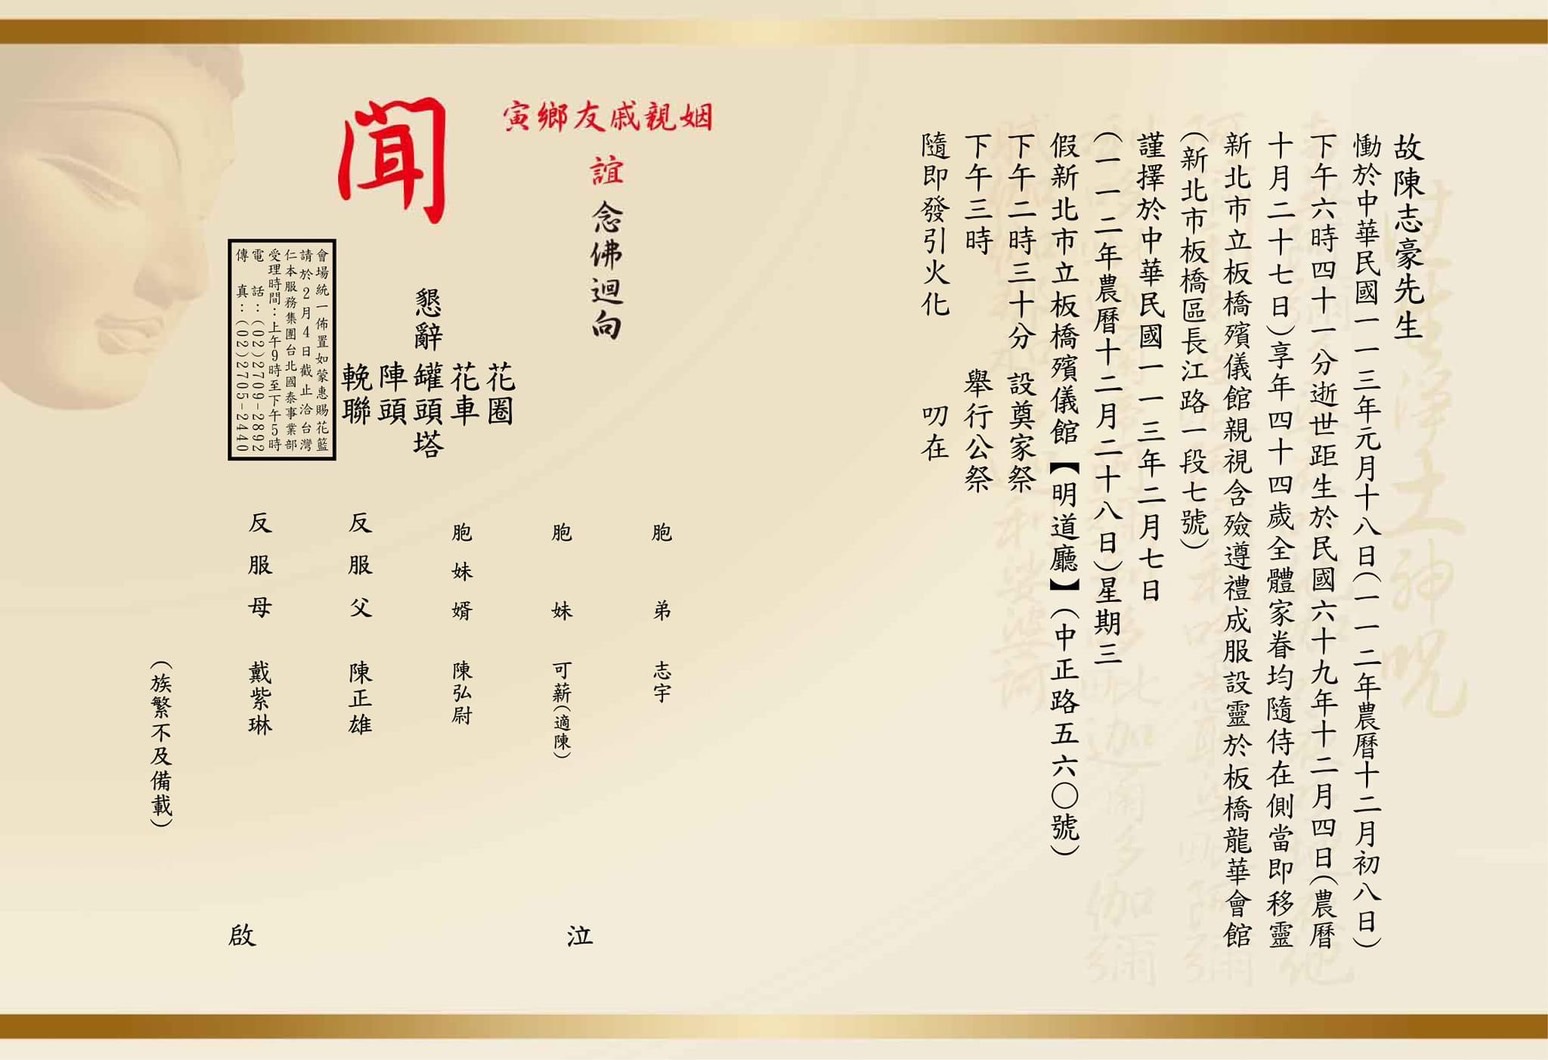 故陳志豪先生
慟於中華民國一一三年元月十八日(一一二年農曆十二月初八日)
下午六時四十一分逝世距生於民國六十九年十二月四日(農曆
十月二十七日)享年四十四歲全體家眷均隨侍在側當即移靈
新北市立板橋殯儀館親視含殮遵禮成服設靈於板橋龍華會館
(新北市板橋區長江路一段七號)
謹擇於中華民國一一三年二月七日
(一一二年農曆十二月二十八日)星期三
假新北市立板橋殯儀館【明道廳】(中正路五六〇號)
下午二時三十分 設奠家祭
下午三時 舉行公祭
隨即發引火化 叨在
寅鄉友戚親姻
誼念佛迴向
聞
懇辭
花圈
花車
罐頭塔
陣頭
輓聯
會場統一佈置如蒙惠賜花籃
請於2月4日截止洽台灣
仁本服務集團台北國泰事業部
受理時間:上午9時至下午5時
電話:(02)2709-2892
傳真:(02)2705-2440
胞弟 志宇
胞妹 可薪(適陳)
胞妹婿 陳弘尉
反服父 陳正雄
反服母 戴紫琳
(族繁不及備載)
泣
啟
往生淨土神咒